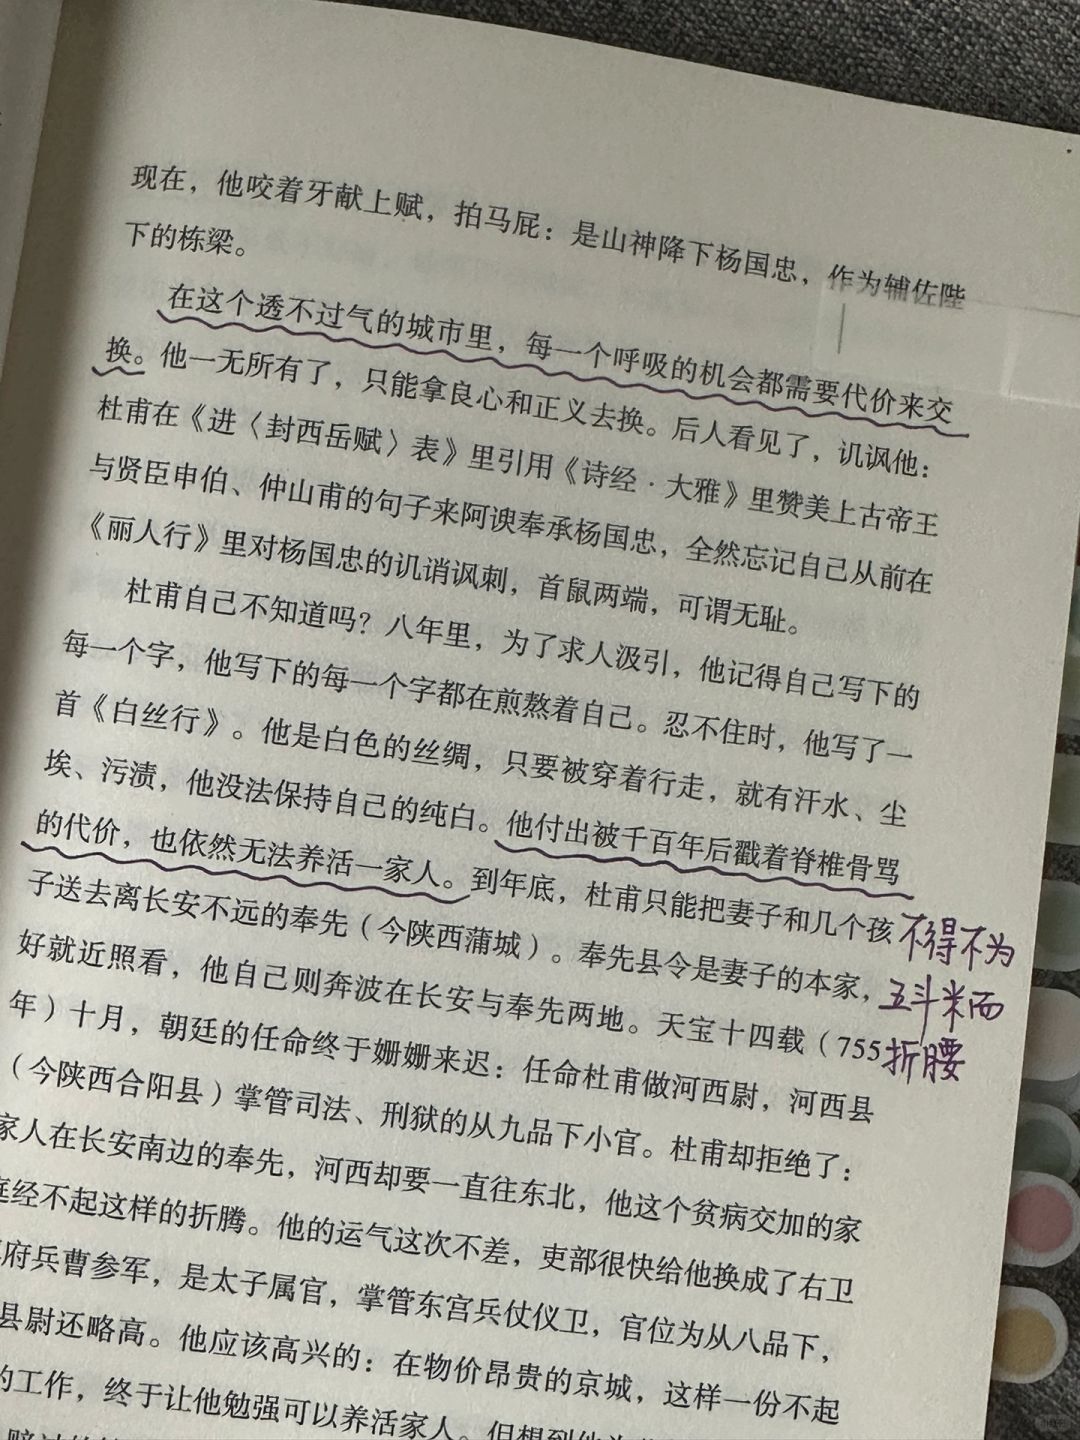 现在，他咬着牙献上赋，拍马屁：是山神降下杨国忠，作为辅佐陛
下的栋梁。
在这个透不过气的城市里，每一个呼吸的机会都需要代价来交
换。他一无所有了，只能拿良心和正义去换。后人看见了，讥讽他：
杜甫在《进〈封西岳赋〉表》里引用《诗经·大雅》里赞美上古帝王
与贤臣申伯、仲山甫的句子来阿谀奉承杨国忠，全然忘记自己从前在
《丽人行》里对杨国忠的讥诮讽刺，首鼠两端，可谓无耻。
杜甫自己不知道吗？八年里，为了求人汲引，他记得自己写下的
每一个字，他写下的每一个字都在煎熬着自己。忍不住时，他写了一
首《白丝行》。他是白色的丝绸，只要被穿着行走，就有汗水、尘
埃、污渍，他没法保持自己的纯白。他付出被千百年后戳着脊椎骨骂
的代价，也依然无法养活一家人。到年底，杜甫只能把妻子和几个孩
子送去离长安不远的奉先（今陕西蒲城）。奉先县令是妻子的本家，
好就近照看，他自己则奔波在长安与奉先两地。天宝十四载（755
年）十月，朝廷的任命终于姗姗来迟：任命杜甫做河西尉，河西县
（今陕西合阳县）掌管司法、刑狱的从九品下小官。杜甫却拒绝了：
家人在长安南边的奉先，河西却要一直往东北，他这个贫病交加的家
庭经不起这样的折腾。他的运气这次不差，吏部很快给他换成了右卫
府兵曹参军，是太子属官，掌管东宫兵仗仪卫，官位为从八品下，
县尉还略高。他应该高兴的：在物价昂贵的京城，这样一份不起
的工作，终于让他勉强可以养活家人。但想到他为
不得不为
五斗米而
折腰